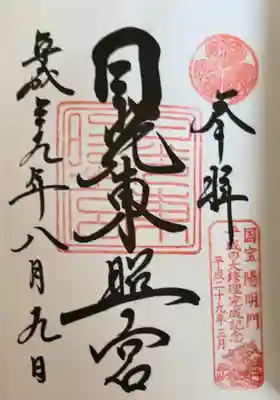 奉拝
日光東照宮
平成二十九年八月九日
国宝 陽明門
平成の大修理完成記念
平成二十九年三月